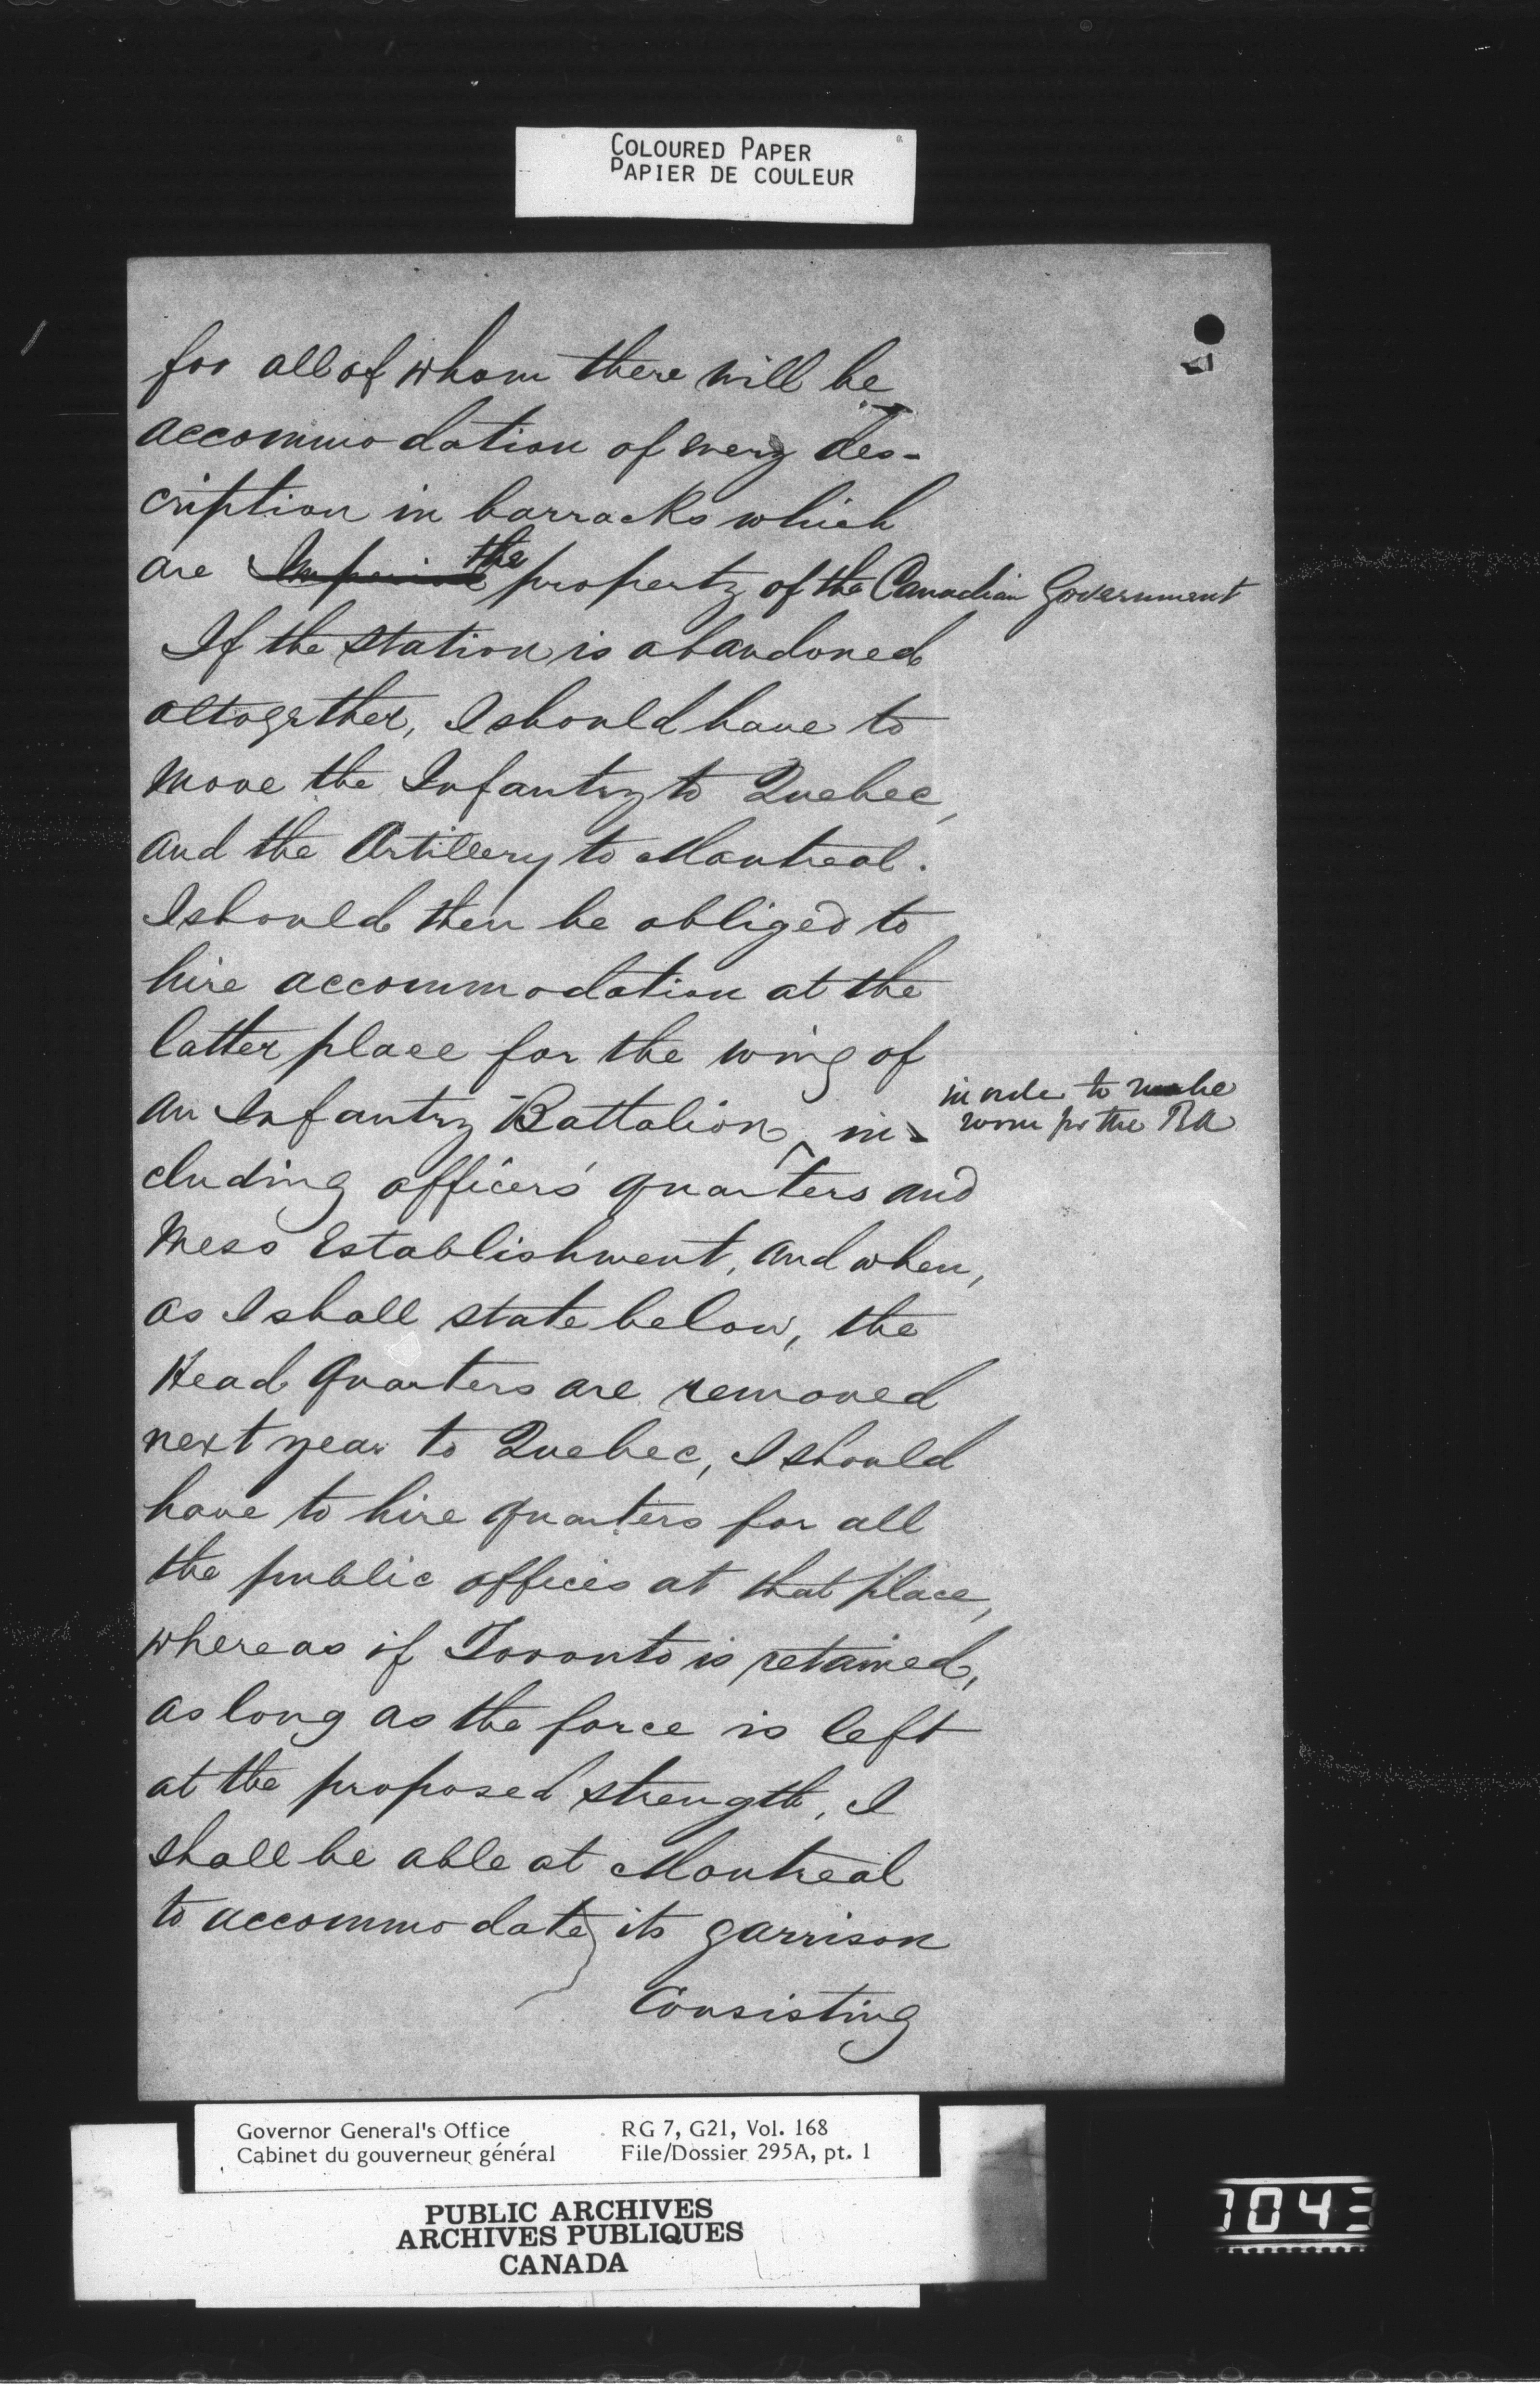 COLOURED PAPER
PAPIER DE COULEUR
for all of whom there will be
accommodation of every des-
cription in barracks which
are Imperial the property of the Canadian Government
If the station is abandoned
altogether, I should have to
move the Infantry to Quebec,
and the Artillery to Montreal.
I should then be obliged to
hire accommodation at the
latter place for the wing of
an Infantry Battalion ^ in-
in order to make
room for the RA
cluding officers' quarters and
Mess Establishment, and when,
as I shall state below, the
Head Quarters are removed
next year to Quebec, I should
have to hire quarters for all
the public offices at that place,
whereas if Toronto is retained,
as long as the force is left
at the proposed strength, I
shall be able at Montreal
to accommodate its garrison
Consisting
Governor General's Office
Cabinet du gouverneur général
RG 7, G21, Vol. 168
File/Dossier 295A, pt. 1
PUBLIC ARCHIVES
ARCHIVES PUBLIQUES
CANADA
1043